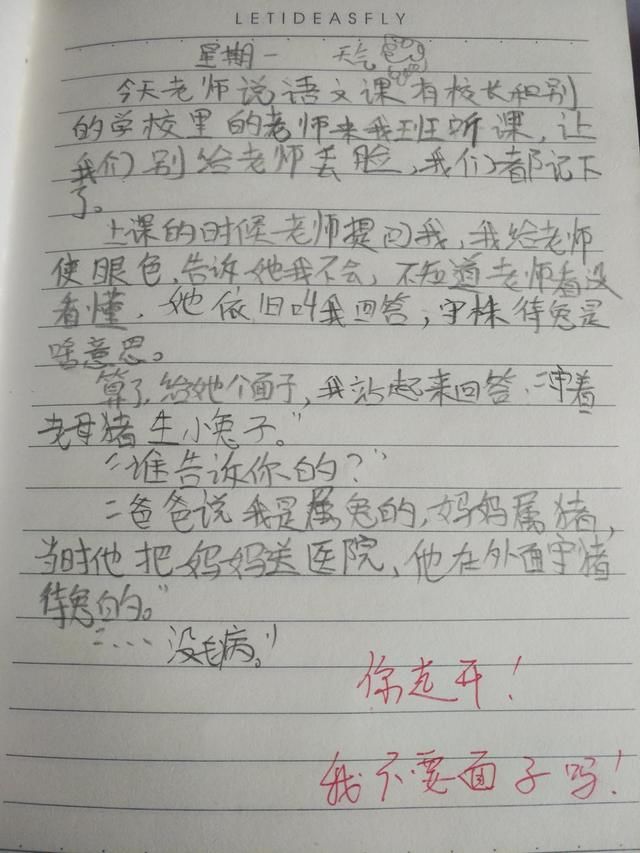 LETIDEASFLY
星期一 天气
今天老师说语文课有校长和别
的学校里的老师来我班听课，让
我们别给老师丢脸，我们都记下
了。
上课的时候老师提问我，我给老师
使眼色，告诉她我不会，不知道老师看没
看懂，她依旧叫我回答，守株待兔是
啥意思。
算了，给她个面子，我站起来回答：“守着
老母猪生小兔子。”
“谁告诉你的？”
“爸爸说我是属兔的，妈妈属猪，
当时他把妈妈送医院，他在外面守猪
待兔的。”
“... 没毛病。”
你走开！
我不要面子吗！